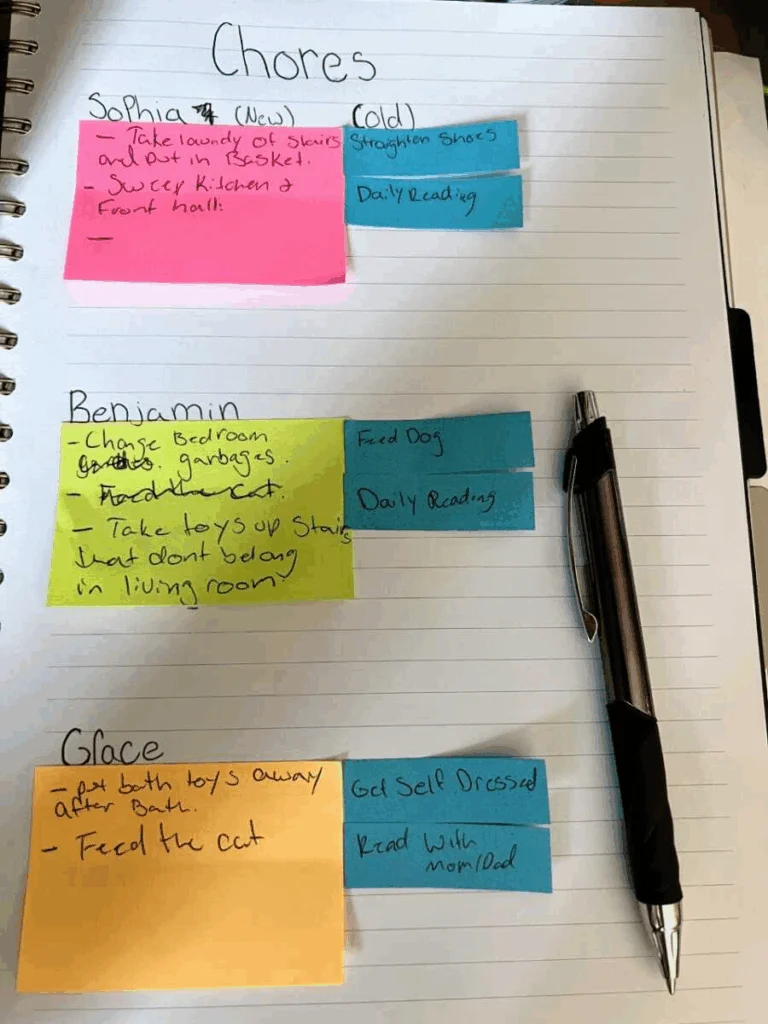 Chores
Sophia (New) (old)
- Take laundy of stairs
and put in Basket.
- Sweep Kitchen &
Front hall.
-
Straighten Shoes
Daily Reading
Benjamin
- Change Bedroom
garbages.
- Feed the cat.
- Take toys up Stairs
that dont belong
in living room
Feed Dog
Daily Reading
Grace
- put bath toys away
after Bath.
- Feed the cat
Get Self Dressed
Read With
Mom/Dad